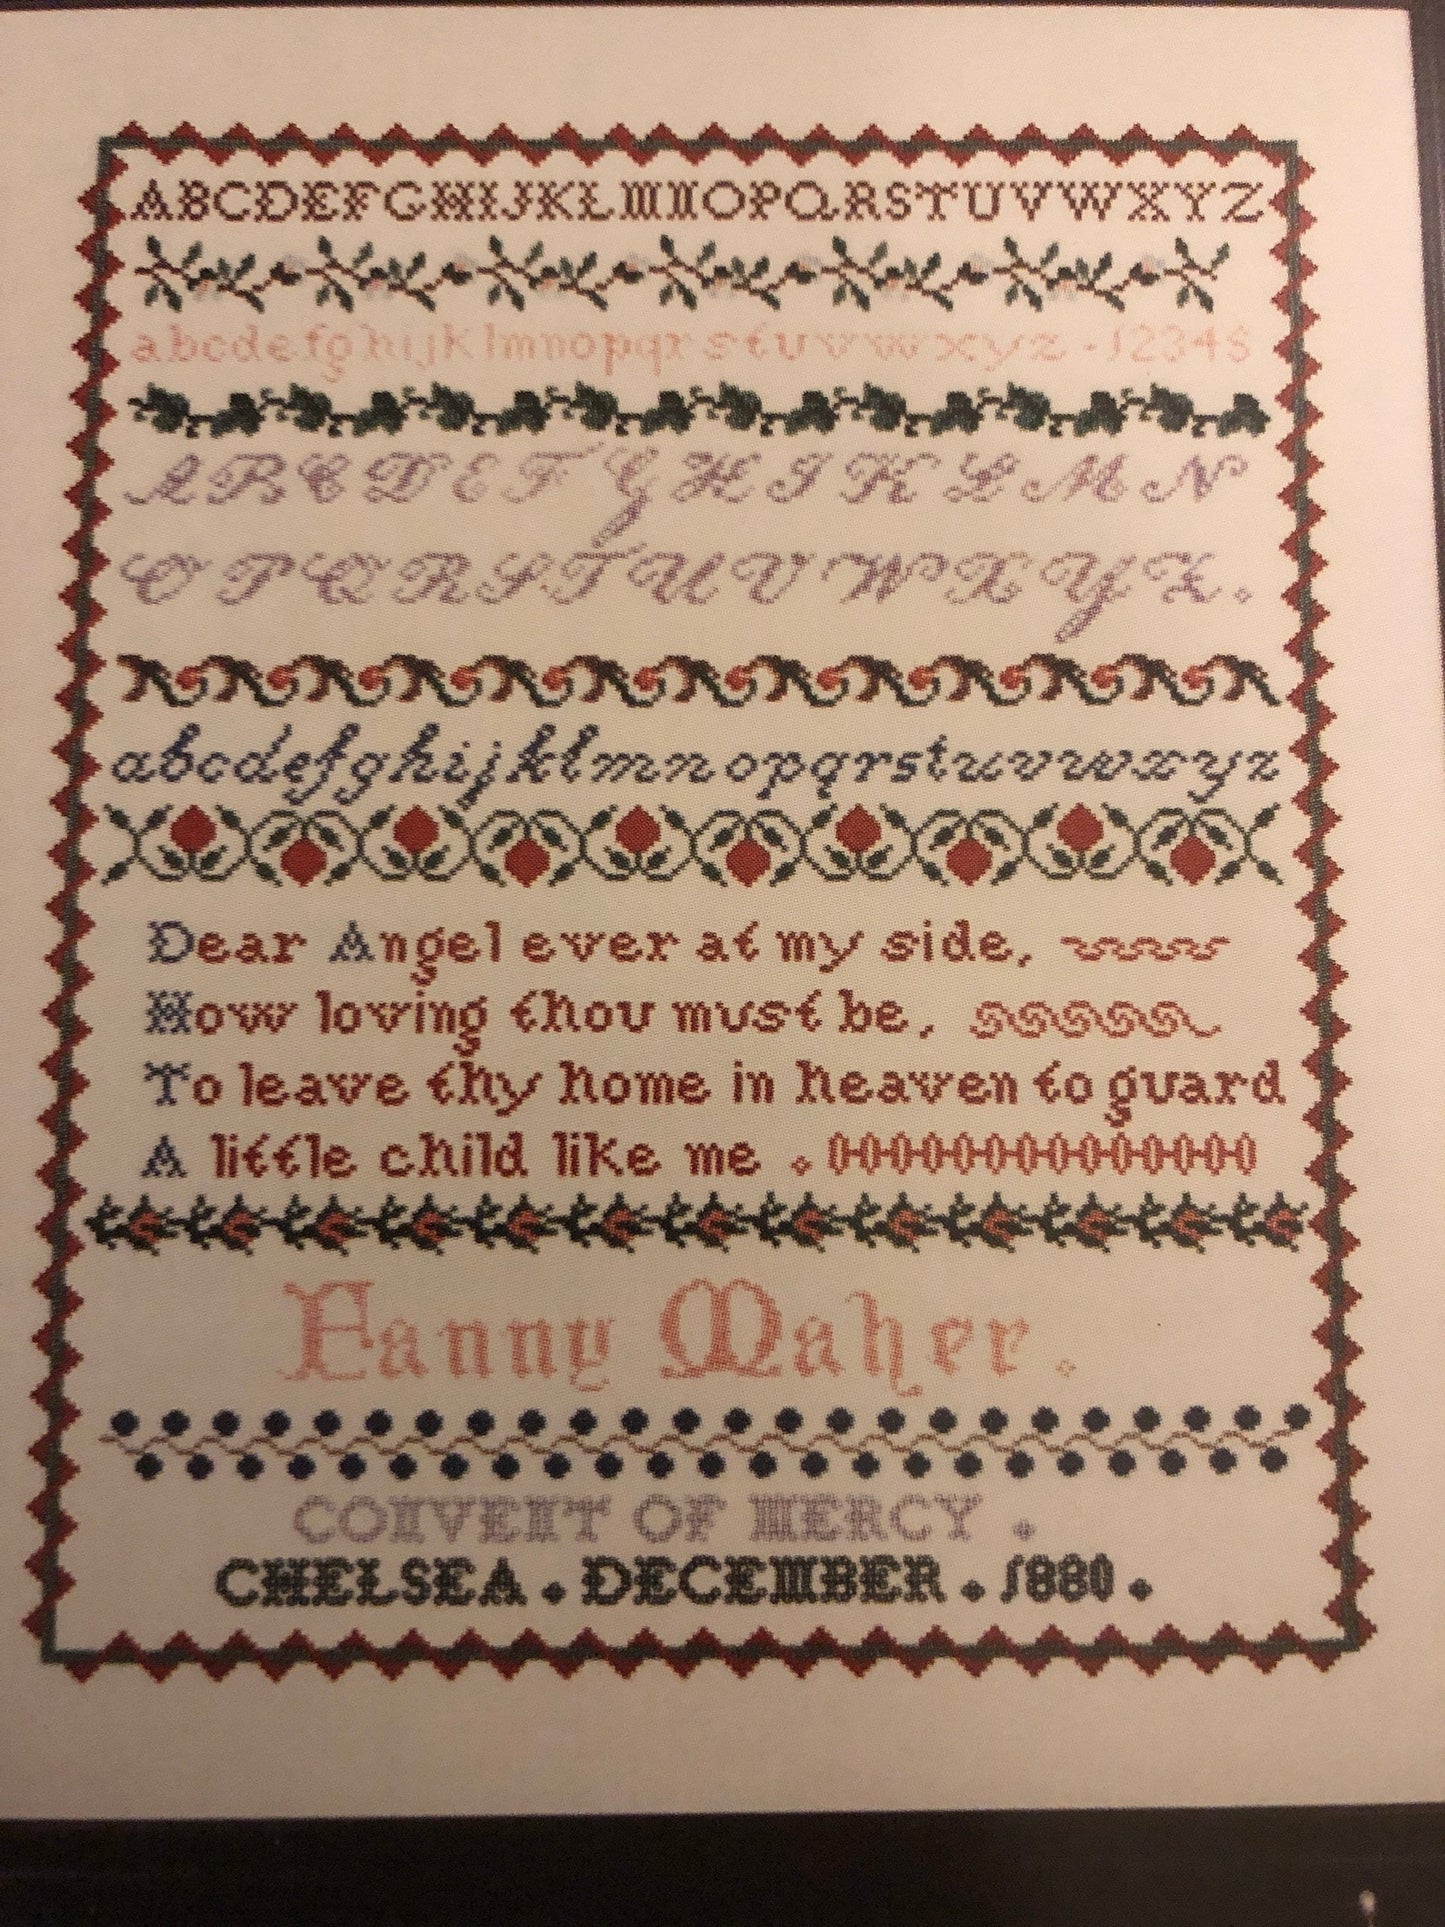 ABCDEFGHIJKLMNOPQRSTUVWXYZ
abcdefghijklmnopqrstuvwxyz-12345
ABCDEFGHIKLMN
OPQRSTUVWXYZ.
abcdefghijklmnopqrstuvwxyz
Dear Angel ever at my side,
How loving thou must be,
To leave thy home in heaven to guard
A little child like me.
Fanny Maher.
CONVENT OF MERCY.
CHELSEA. DECEMBER. 1880.